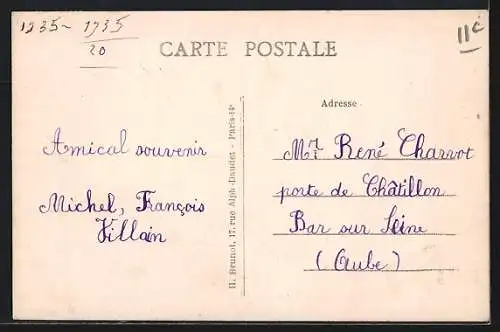 1235~ 1735
20
11c
CARTE POSTALE
Adresse
Amical souvenir
Michel, François
Villain
Mr René Charvot
porte de Châtillon
Bar sur Seine
(Aube)
H. Brunot, 17, rue Alph.-Daudet - Paris-14e